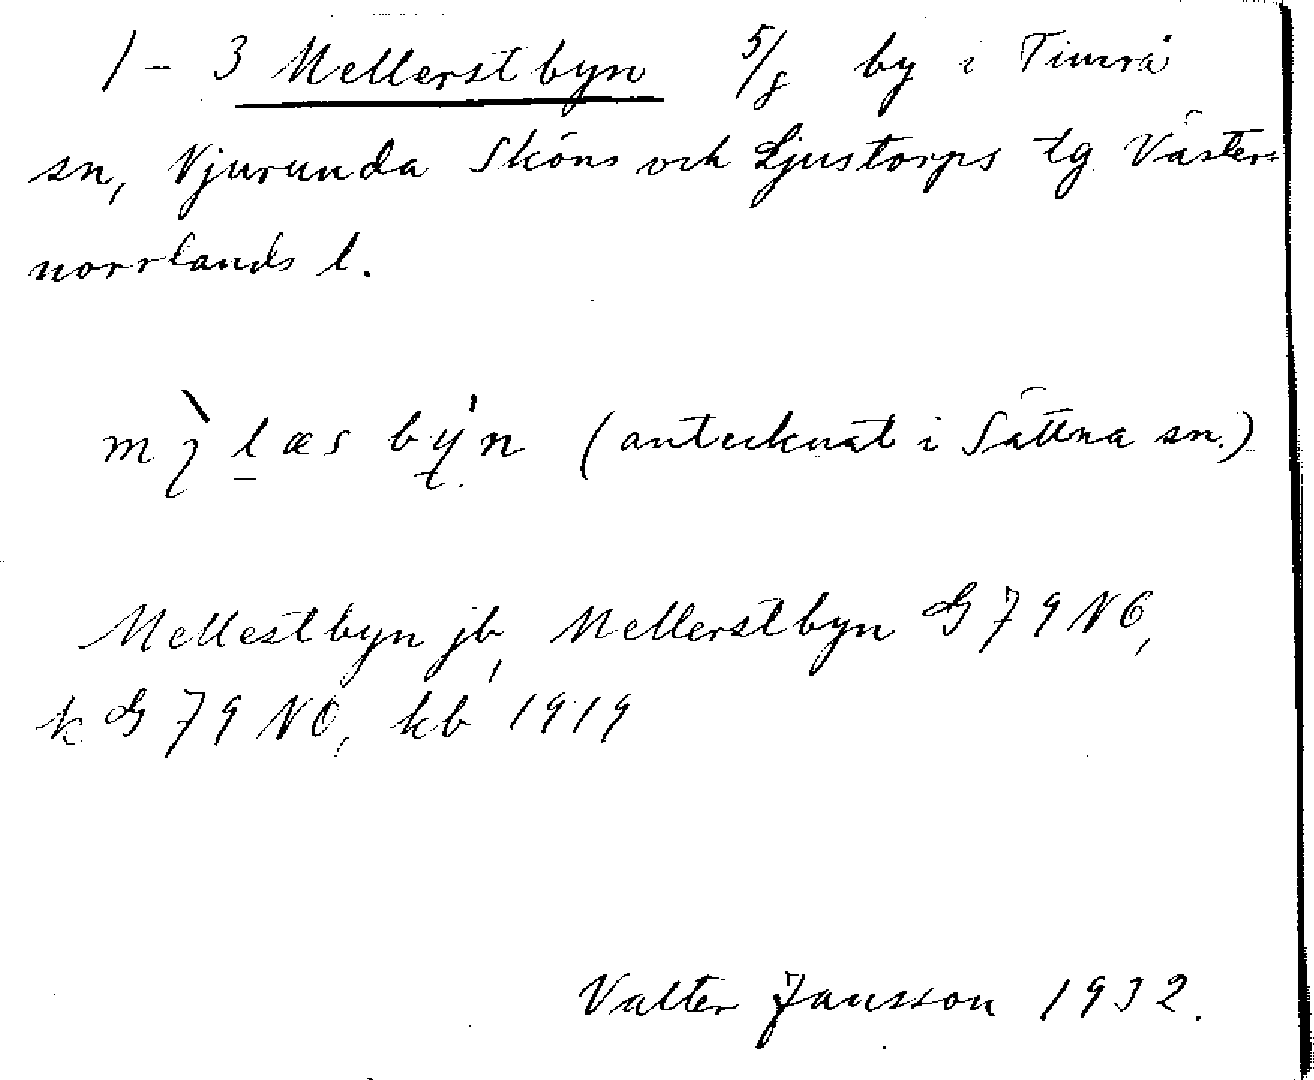 1-3 Mellerstbyn 5/8 by i Timrå
sn, Njurunda Sköns och Ljustorps tg Väster=
norrlands l.
læs býn (antecknat i Sättna sn.)
Mellestbyn jb, Mellerstbyn G 79 NO,
k G 79 NO, kb 1919
Valter Jansson 1932.